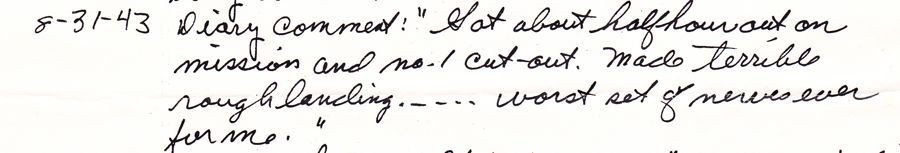 8-31-43 Diary comment: "Got about half hour out on
mission and no. 1 cut-out. Made terrible
rough landing. - - - - worst set of nerves ever
for me."